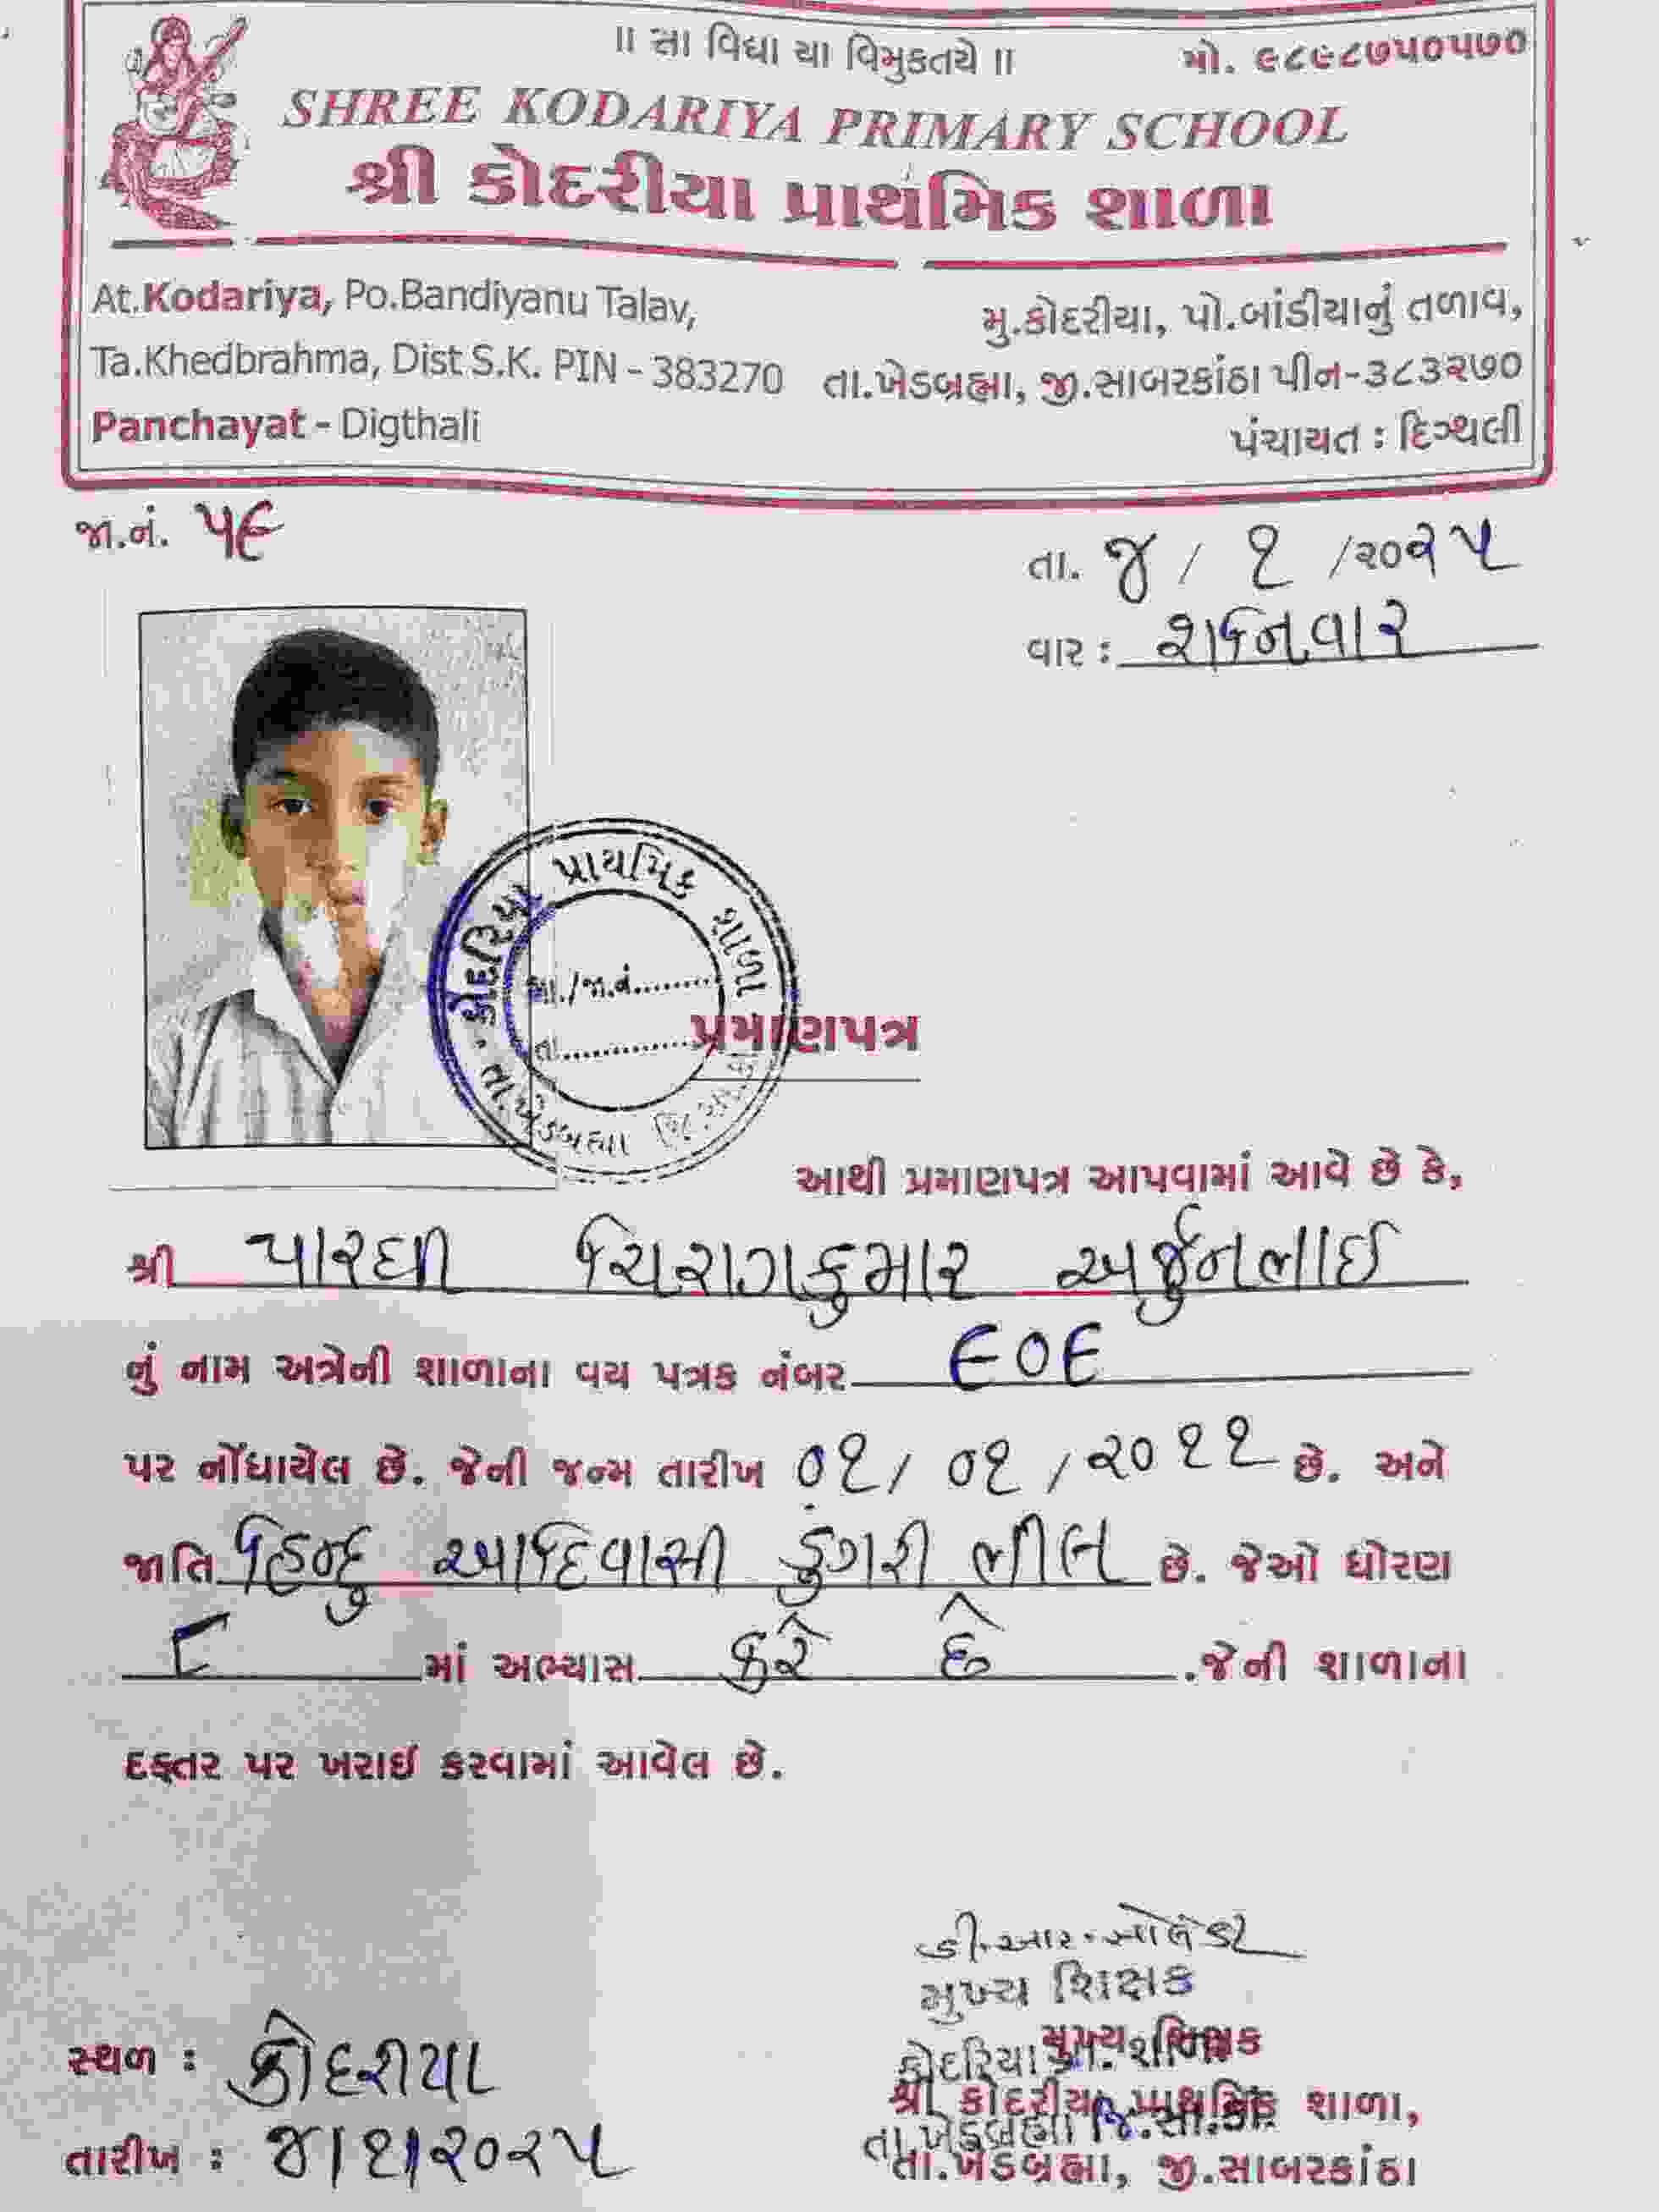 ॥ સા વિદ્યા યા વિમુકતયે ॥
મો. ૯૮૯૮૭૫૦૫૭૦
SHREE KODARIYA PRIMARY SCHOOL
શ્રી કોદરીયા પ્રાથમિક શાળા
At.Kodariya, Po.Bandiyanu Talav,
Ta.Khedbrahma, Dist S.K. PIN - 383270
Panchayat - Digthali
મુ.કોદરીયા, પો.બાંડીયાનું તળાવ,
તા.ખેડબ્રહ્મા, જી.સાબરકાંઠા પીન-૩૮૩૨૭૦
પંચાયત : દિગ્થલી
જા.નં. ૫૯
તા. ૪ / ૧ /૨૦૨૫
વાર : શનિવાર
કોદરિયા પ્રાથમિક શાળા
આ./જા.નં.........
તા..............
તા.ખેડબ્રહ્મા જિ.સા.કાં.
પ્રમાણપત્ર
આથી પ્રમાણપત્ર આપવામાં આવે છે કે,
શ્રી પારઘી ચિરાગકુમાર અર્જુનભાઈ
નું નામ અત્રેની શાળાના વય પત્રક નંબર ૯૦૯
પર નોંધાયેલ છે. જેની જન્મ તારીખ ૦૧/ ૦૧ /૨૦૧૧ છે. અને
જાતિ હિન્દુ આદિવાસી ડુંગરી ભીલ છે. જેઓ ધોરણ
૮ માં અભ્યાસ કરે છે .જેની શાળાના
દફતર પર ખરાઈ કરવામાં આવેલ છે.
ડી.આર.
મુખ્ય શિક્ષક
કોદરિયા પ્રા. શાળા
તા.ખેડબ્રહ્મા જિ.સા.કાં.
મુખ્ય શિક્ષક
શ્રી કોદરીયા પ્રાથમિક શાળા,
તા.ખેડબ્રહ્મા, જી.સાબરકાંઠા
સ્થળ : કોદરીયા
તારીખ : ૪/૧/૨૦૨૫